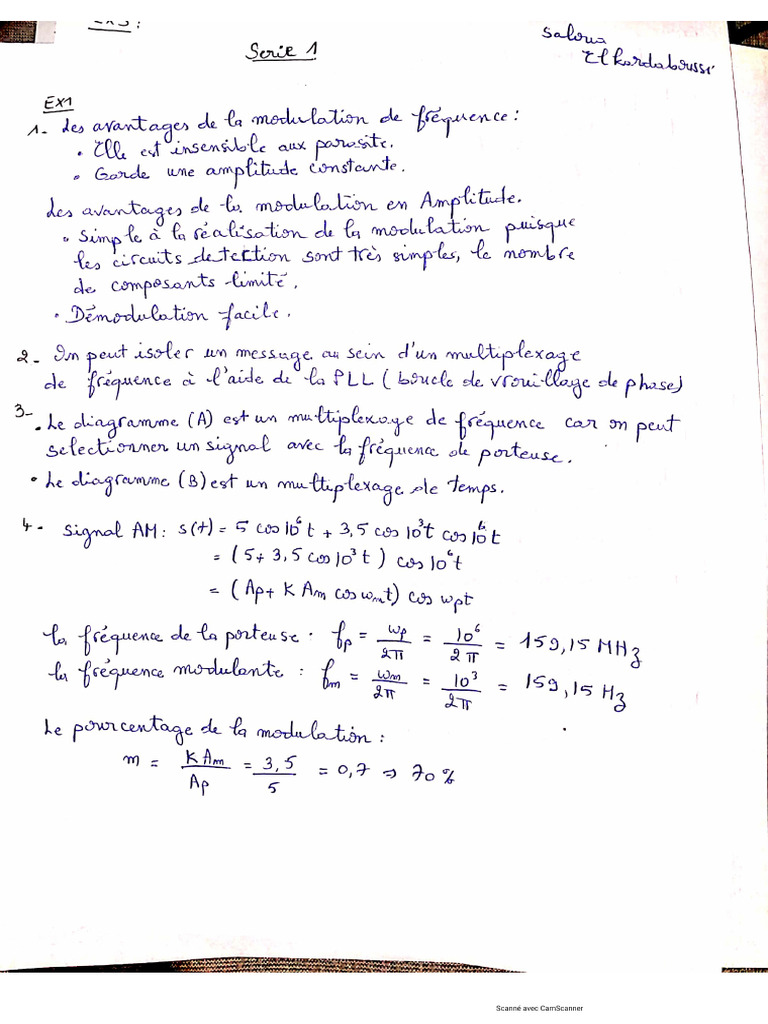 Ex3:
Serie 1
Saloua
Elkardaboussi
EX1
1- Les avantages de la modulation de fréquence:
• Elle est insensible aux parasite.
• Garde une amplitude constante.
Les avantages de la modulation en Amplitude.
• Simple à la réalisation de la modulation puisque
les circuits detection sont très simples, le nombre
de composants limité.
• Démodulation facile.
2- On peut isoler un message au sein d'un multiplexage
de fréquence à l'aide de la PLL (boucle de vrouillage de phase)
3- • Le diagramme (A) est un multiplexage de fréquence car on peut
selectionner un signal avec la fréquence de porteuse.
• Le diagramme (B) est un multiplexage de temps.
4- Signal AM: s(t) = 5 cos 10⁶t + 3,5 cos 10³t cos 10⁶t
= (5 + 3,5 cos 10³t) cos 10⁶t
= (Ap + K Am cos wmt) cos wpt
la fréquence de la porteuse. fp = wp/2π = 10⁶/2π = 159,15 MHz
la fréquence modulante : fm = wm/2π = 10³/2π = 159,15 Hz
Le pourcentage de la modulation:
m = KAm/Ap = 3,5/5 = 0,7 ⇒ 70%
Scanné avec CamScanner